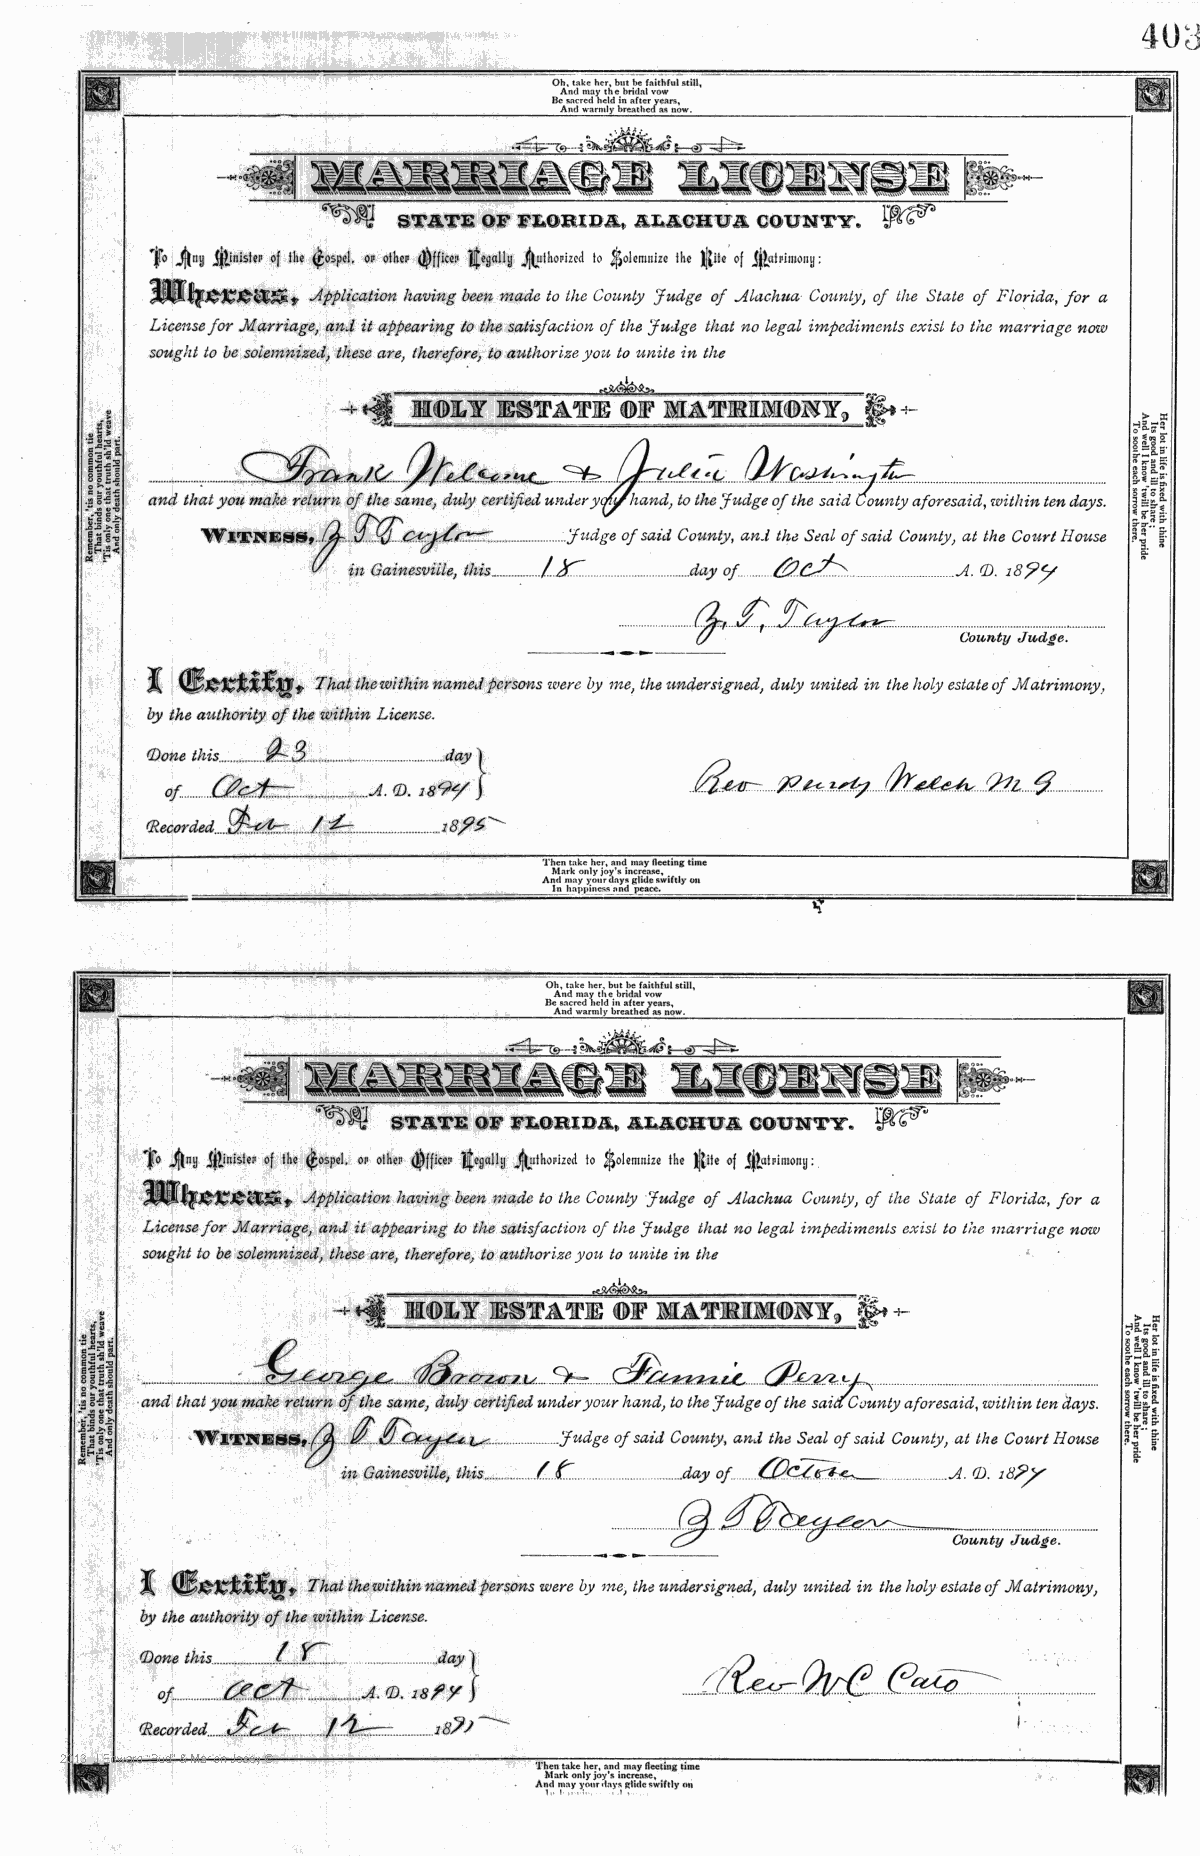 403
Oh, take her, but be faithful still,
And may the bridal vow
Be sacred held in after years,
And warmly breathed as now.
MARRIAGE LICENSE
STATE OF FLORIDA, ALACHUA COUNTY.
To Any Minister of the Gospel, or other Officer Legally Authorized to Solemnize the Rite of Matrimony:
Whereas, Application having been made to the County Judge of Alachua County, of the State of Florida, for a
License for Marriage, and it appearing to the satisfaction of the Judge that no legal impediments exist to the marriage now
sought to be solemnized, these are, therefore, to authorize you to unite in the
HOLY ESTATE OF MATRIMONY,
Frank Welcome & Julia Washington
and that you make return of the same, duly certified under your hand, to the Judge of the said County aforesaid, within ten days.
WITNESS, Z T Taylor Judge of said County, and the Seal of said County, at the Court House
in Gainesville, this 18 day of Oct A. D. 1894
Z. T. Taylor
County Judge.
I Certify, That the within named persons were by me, the undersigned, duly united in the holy estate of Matrimony,
by the authority of the within License.
Done this 23 day
of Oct A. D. 1894
Rev Purdy Welch M G
Recorded Feb 12 1895
Remember, 'tis no common tie
That binds our youthful hearts,
'Tis only one that truth sh'ld weave
And only death should part.
Her lot in life is fixed with thine
Its good and ill to share;
And well I know 'twill be her pride
To soothe each sorrow there.
Then take her, and may fleeting time
Mark only joy's increase,
And may your days glide swiftly on
In happiness and peace.
Oh, take her, but be faithful still,
And may the bridal vow
Be sacred held in after years,
And warmly breathed as now.
MARRIAGE LICENSE
STATE OF FLORIDA, ALACHUA COUNTY.
To Any Minister of the Gospel, or other Officer Legally Authorized to Solemnize the Rite of Matrimony:
Whereas, Application having been made to the County Judge of Alachua County, of the State of Florida, for a
License for Marriage, and it appearing to the satisfaction of the Judge that no legal impediments exist to the marriage now
sought to be solemnized, these are, therefore, to authorize you to unite in the
HOLY ESTATE OF MATRIMONY,
George Brown & Fannie Perry
and that you make return of the same, duly certified under your hand, to the Judge of the said County aforesaid, within ten days.
WITNESS, Z T Taylor Judge of said County, and the Seal of said County, at the Court House
in Gainesville, this 18 day of October A. D. 1894
Z T Taylor
County Judge.
I Certify, That the within named persons were by me, the undersigned, duly united in the holy estate of Matrimony,
by the authority of the within License.
Done this 18 day
of Oct A. D. 1894
Rev W C Cato
Recorded Feb 12 1895
Remember, 'tis no common tie
That binds our youthful hearts,
'Tis only one that truth sh'ld weave
And only death should part.
Her lot in life is fixed with thine
Its good and ill to share;
And well I know 'twill be her pride
To soothe each sorrow there.
Then take her, and may fleeting time
Mark only joy's increase,
And may your days glide swiftly on